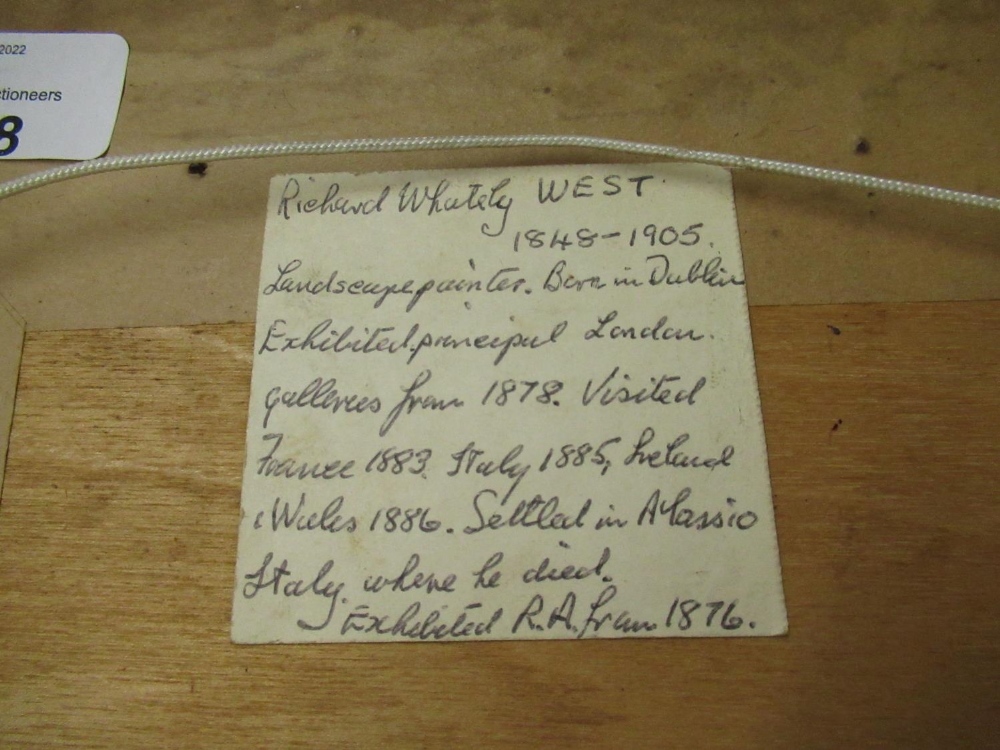 2022
tioneers
8
Richard Whately WEST.
1848-1905.
Landscape painter. Born in Dublin
Exhibited principal London.
galleries from 1878. Visited
France 1883. Italy 1885, Ireland
& Wales 1886. Settled in Alassio
Italy. where he died.
Exhibited R.A. from 1876.